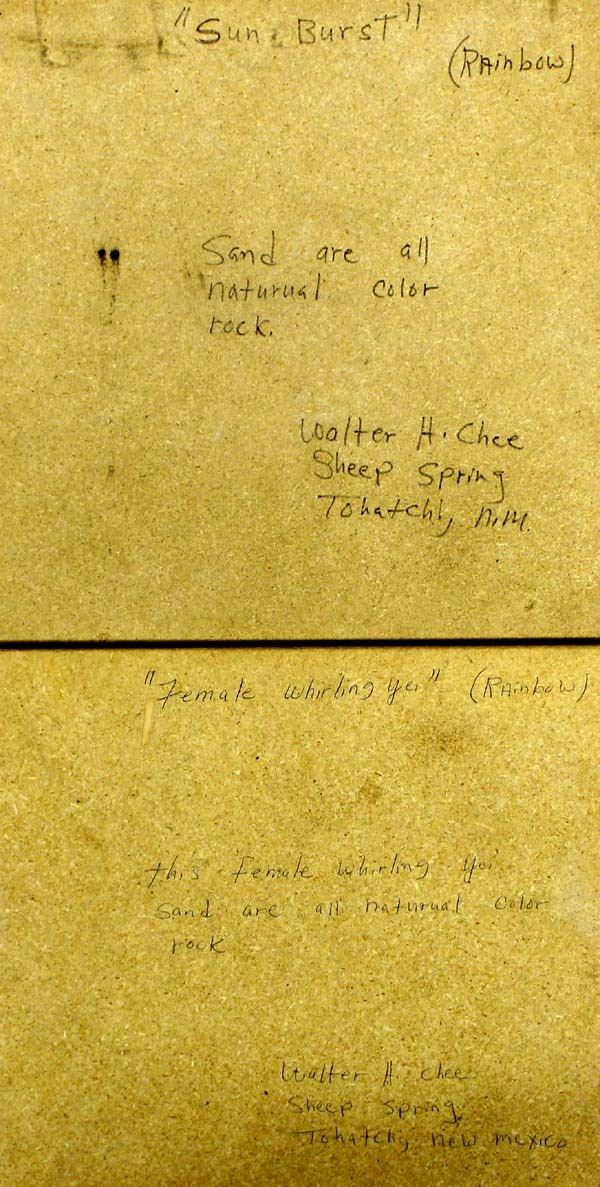 "Sun Burst"
(RAinbow)
Sand are all
naturual color
rock.
Walter H. Chee
Sheep Spring
Tohatchi, N.M.
"Female whirling yei" (RAinbow)
this Female whirling Yei
sand are all naturual color
rock
Walter H. Chee
Sheep Spring,
Tohatchi, New mexico